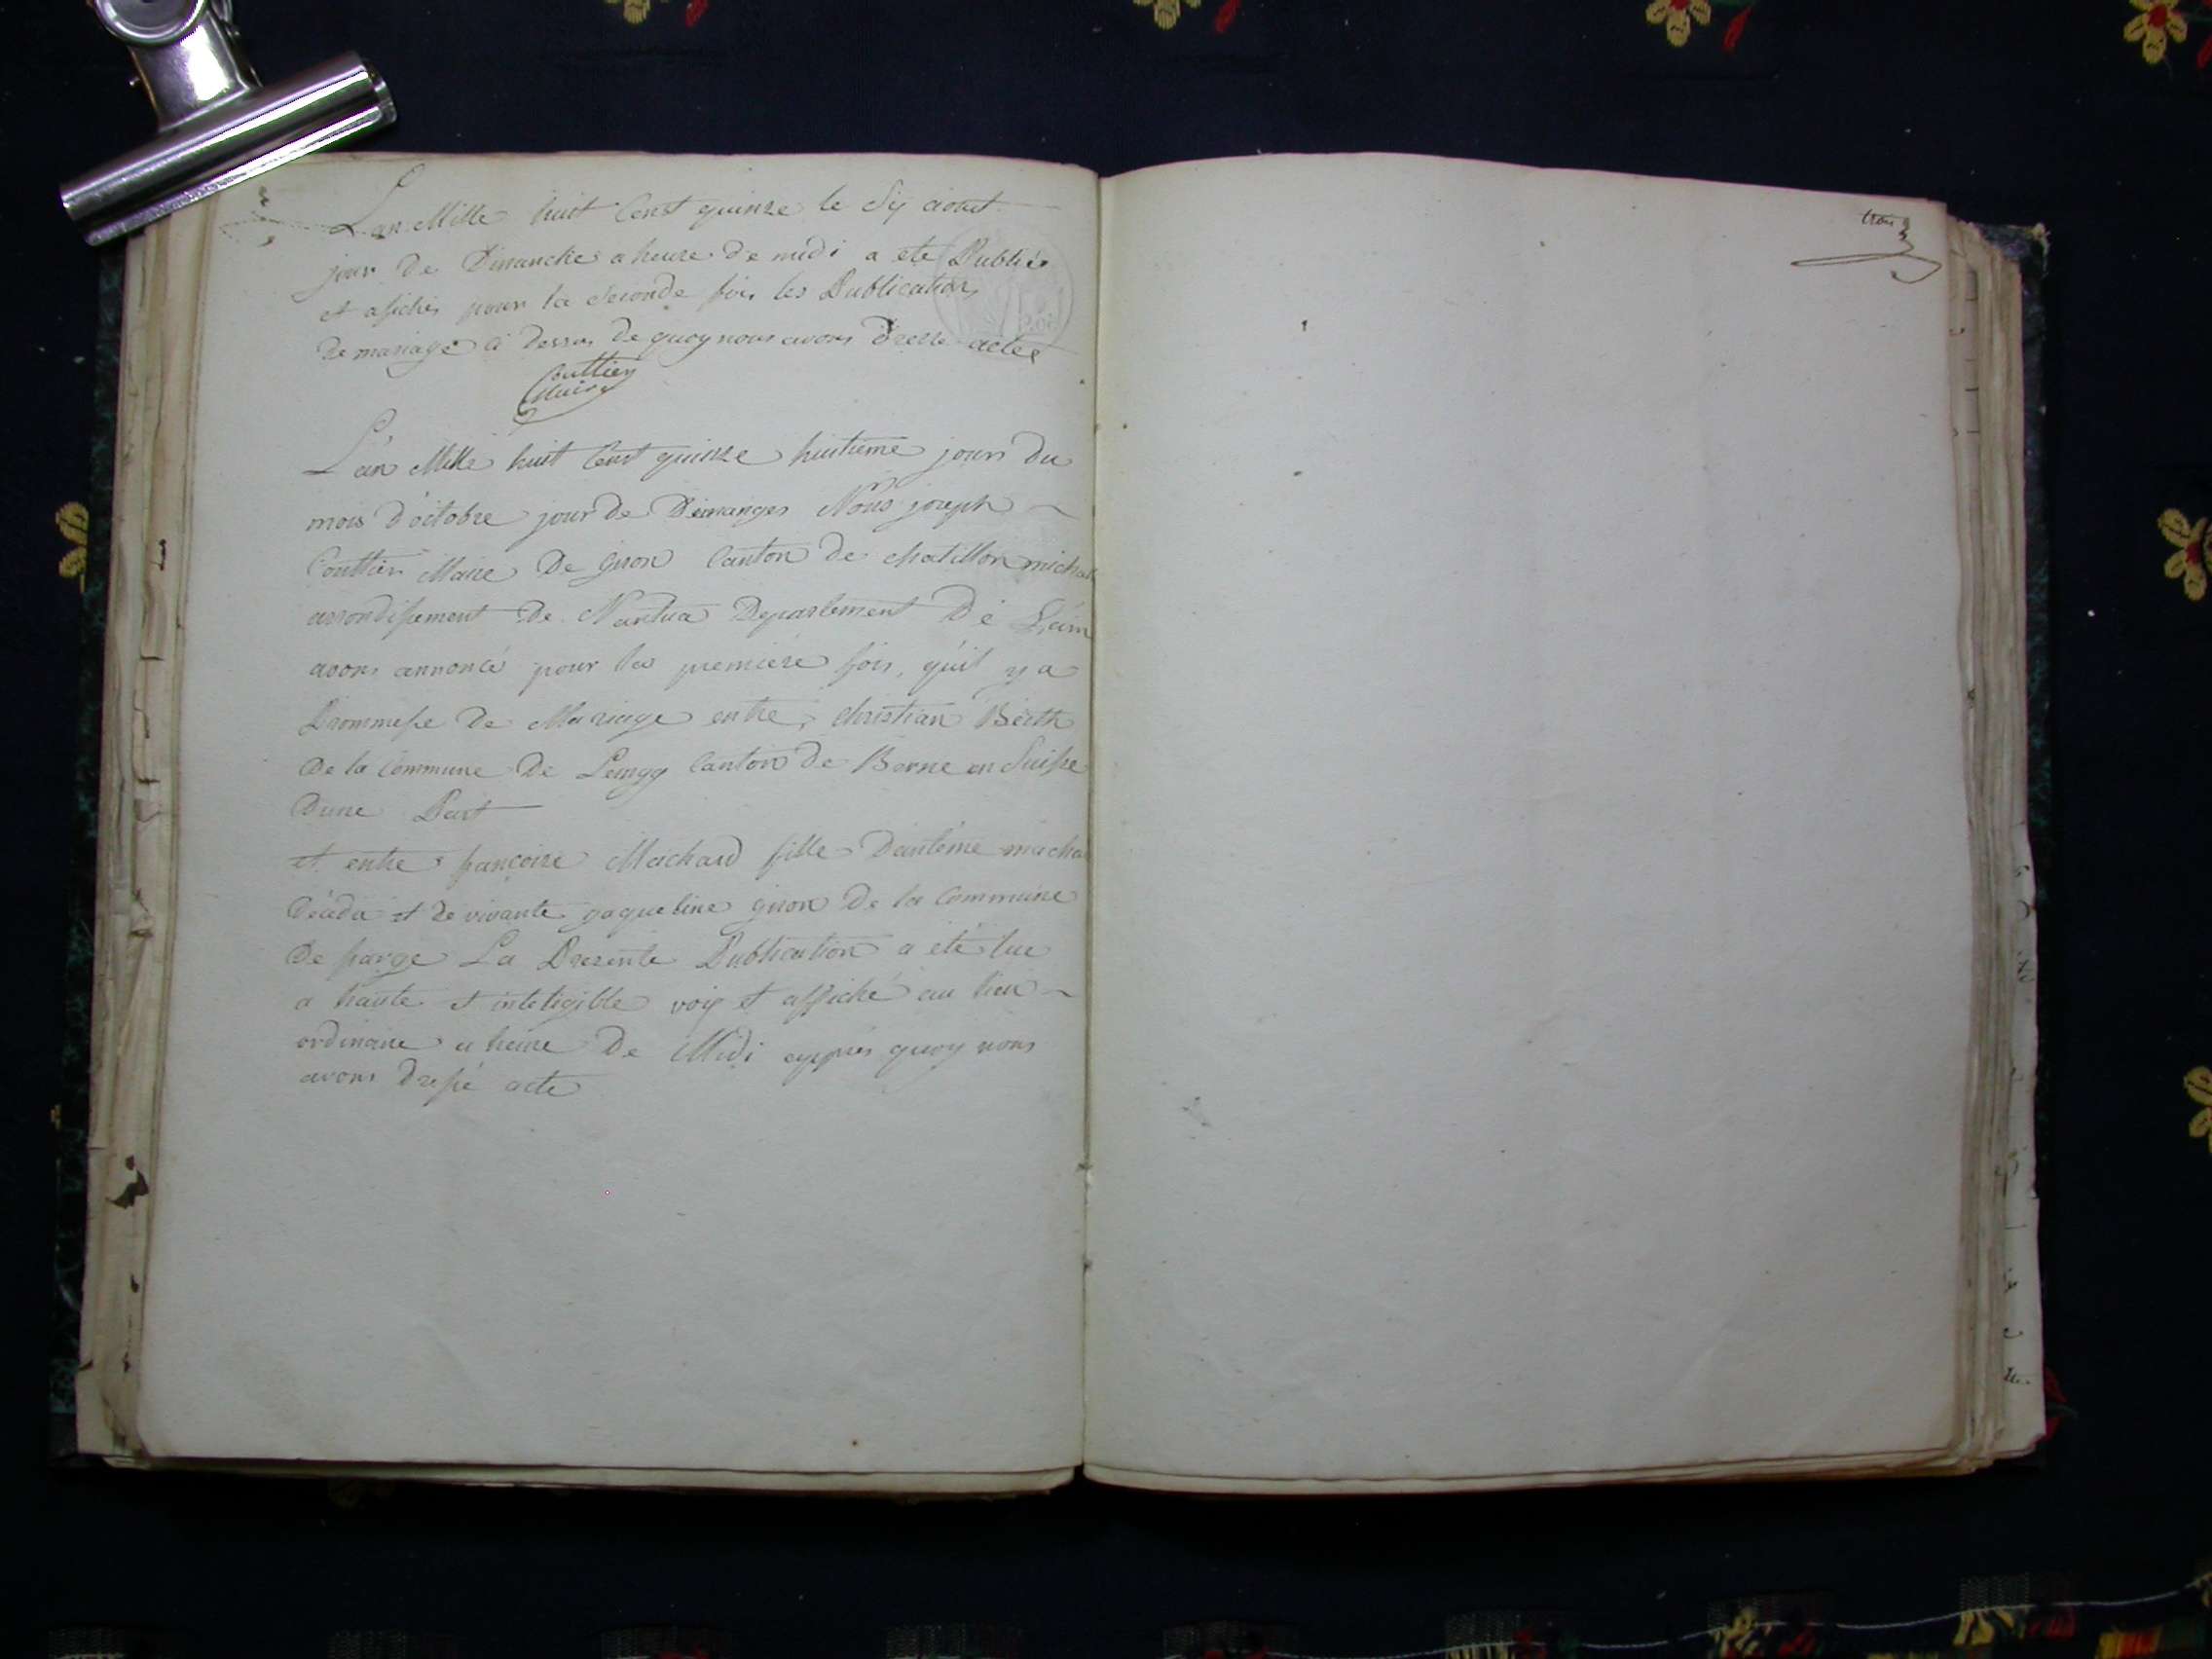 L'an Mille huit Cent quinze le Six aout
jour de Dimanche a heure de midi a ete Publiés
et afichés pour la Seconde fois les Publications
de mariage ci dessus de quoy nous avons dressé actes
Couttier
Maire
L'an Mille huit Cent quinze huitieme jour du
mois d'octobre jour de Dimanges Nous joseph
Couttier Maire De giron Canton de chatillon michail
arrondissement De Nantua Departement De L'ain
avons annoncé pour la premiere fois, qu'il y a
Prommesse De Mariage entre, Christian Beith
De la Commune De Canton de Berne en Suisse
Dune Part
et entre françoise Machard fille Dantéme macha
Décédé et de vivante gaqueline giron De la Commune
De farge La Presente Publication a eté lue
a haute et inteligible voix et affiché au lieu
ordinaire a heure De Midi apprés quoy nous
avons dressé acte
trois